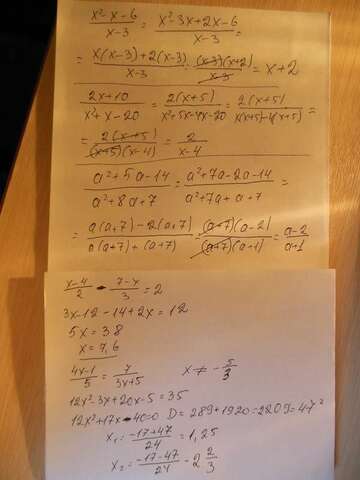 (x²-x-6)/(x-3) = (x²-3x+2x-6)/(x-3) =
= (x(x-3)+2(x-3))/(x-3) = ((x-3)(x+2))/(x-3) = x+2
(2x+10)/(x²+x-20) = (2(x+5))/(x²+5x-4x-20) = (2(x+5))/(x(x+5)-4(x+5)) =
= (2(x+5))/((x+5)(x-4)) = 2/(x-4)
(a²+5a-14)/(a²+8a+7) = (a²+7a-2a-14)/(a²+7a+a+7) =
= (a(a+7)-2(a+7))/(a(a+7)+(a+7)) = ((a+7)(a-2))/((a+7)(a+1)) = (a-2)/(a+1)
(x-4)/2 - (7-x)/3 = 2
3x-12-14+2x=12
5x=38
x=7,6
(4x-1)/5 = 7/(3x+5) x≠-5/3
12x²-3x+20x-5=35
12x²+17x-40=0 D=289+1920=2209=47²
x₁=(-17+47)/24=1,25
x₂=(-17-47)/24-2 2/3